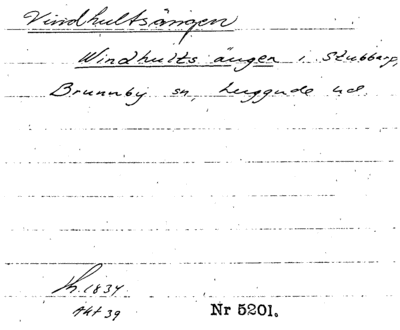 Vindhultsängen
Windhults ängen i Stubbarp,
Brunnby sn, Luggude hd.
1834
Akt 39
Nr 5201.